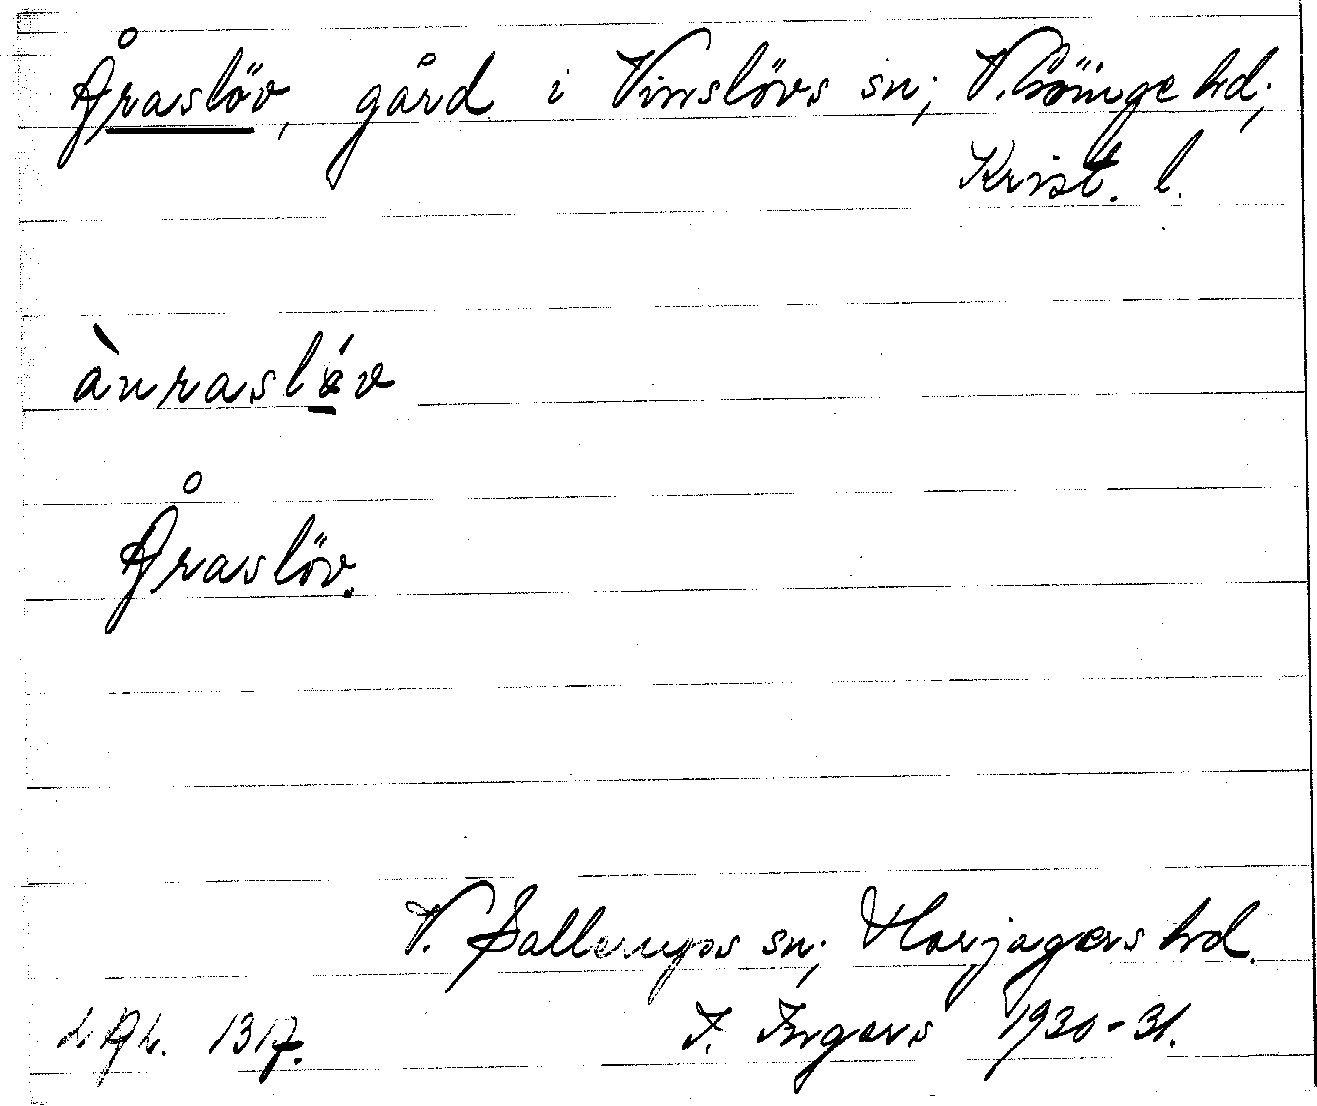 Åraslöv, gård i Vinslövs sn; V. Göinge hd;
Krist. l.
ànraslǿv
Åraslöv.
V. Sallerups sn; Harjagers hd.
I. Ingers 1930-31.
LAL. 1317.